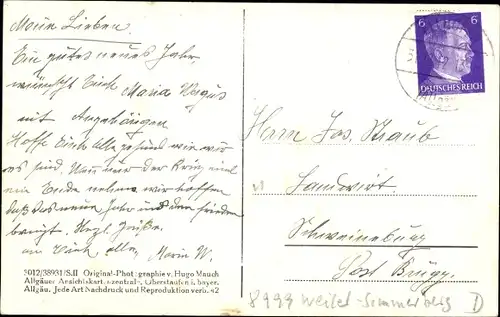 Meine Lieben.
Ein gutes neues Jahr
wünscht Euch Maria Wegus
mit Angehörigen
Hoffe Euch alle gesund wie wir
es sind. Wenn nur der Krieg mal
ein Ende nehme wir hoffen
daß das neue Jahr uns den Frieden
bringt. Hrzl. Grüße
an Euch alle, Maria W.
3012/38931/S.II Original-Photographie v. Hugo Mauch
Allgäuer Ansichtskartenzentrale, Oberstaufen i. bayer.
Allgäu. Jede Art Nachdruck und Reproduktion verb. 42
6 6
DEUTSCHES REICH
Herrn Jos. Straub
Landwirt.
Schweineburg
Post Brugg.
8999 Weiler-Simmerberg D